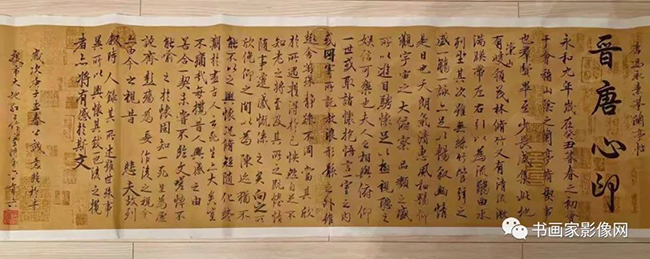 晉唐心印
唐馮承素摹蘭亭帖
永和九年歲在癸丑暮春之初會
于會稽山陰之蘭亭脩禊事
也群賢畢至少長咸集此地
崇山
有峻領茂林脩竹又有清流激
湍暎帶左右引以為流觴曲水
列坐其次雖無絲竹管弦之
盛一觴一詠亦足以暢敘幽情
是日也天朗氣清惠風和暢仰
觀宇宙之大俯察品類之盛
所以遊目騁懷足以極視聽之
娛信可樂也夫人之相與俯仰
一世或取諸懷抱悟言一室之內
或因寄所託放浪形骸之外雖
趣舍萬殊靜躁不同當其欣
於所遇暫得於己快然自足不
知老之將至及其所之既惓情
隨事遷感慨係之矣向之所
欣俛仰之間以為陳迹猶不
能不以之興懷況脩短隨化終
期於盡古人云死生亦大矣豈
不痛哉每攬昔人興感之由
若合一契未嘗不臨文嗟悼不
能喻之於懷固知一死生為虛
誕齊彭殤為妄作後之視今
亦由今之視昔悲夫故列
敘時人錄其所述雖世殊事
異所以興懷其致一也後之攬
者亦將有感於斯文
书画家影像网